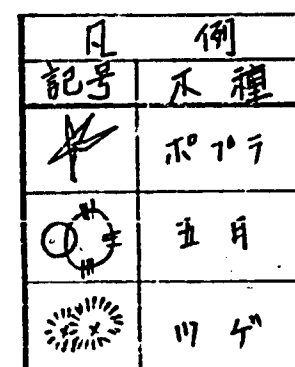 凡例
記号 木種
ポプラ
五月
ツゲ